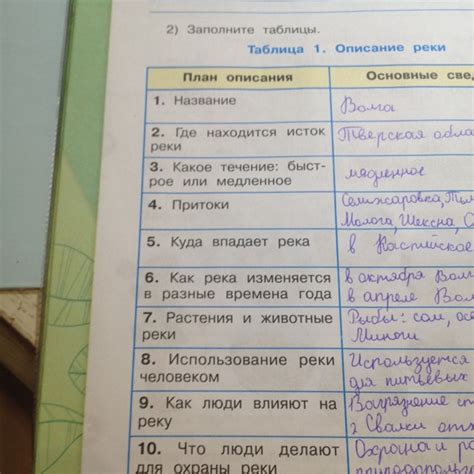 2) Заполните таблицы.
Таблица 1. Описание реки
План описания
Основные све
1. Название
Волга
2. Где находится исток
реки
Тверская обла
3. Какое течение: быст-
рое или медленное
медленное
4. Притоки
Селижаровка,
Молога, Шексна,
5. Куда впадает река
в Каспийское
6. Как река изменяется
в разные времена года
в октябре
в апреле
7. Растения и животные
реки
Рыбы: сом,
Миноги
8. Использование реки
человеком
Используется
для питьевых
9. Как люди влияют на
реку
Загрязнение
Свалки
10. Что люди делают
для охраны реки
Охрана и